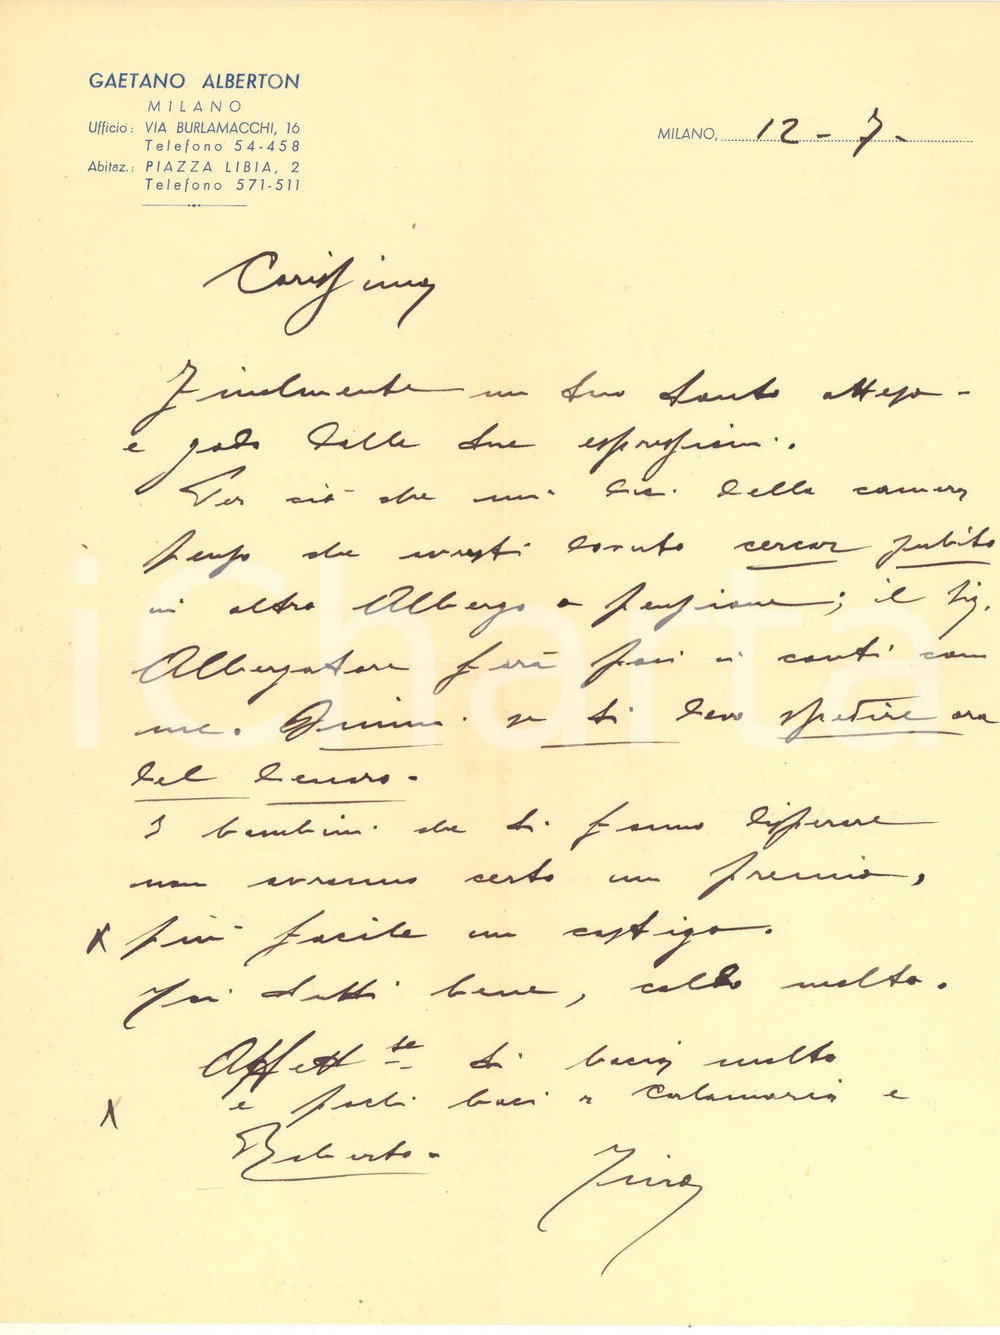 GAETANO ALBERTON
MILANO
Ufficio: VIA BURLAMACCHI, 16
Telefono 54-458
Abitaz.: PIAZZA LIBIA, 2
Telefono 571-511
MILANO, 12 - 7 -
Carissima
Finalmente un tuo tanto atteso -
e godo delle tue espressioni.
Per ciò che mi dici della camera
penso che avresti dovuto cercar subito
in altro Albergo o pensione; il Sig.
Albergatore farà poi i conti con
me. Dimmi se ti devo spedire ora
del denaro.
I bambini che ti fanno disperare
non avranno certo un premio,
x più facile un castigo.
Noi tutti bene, caldo molto.
Affett.te ti bacia molto
x e baci a e
Roberto -
iCharta